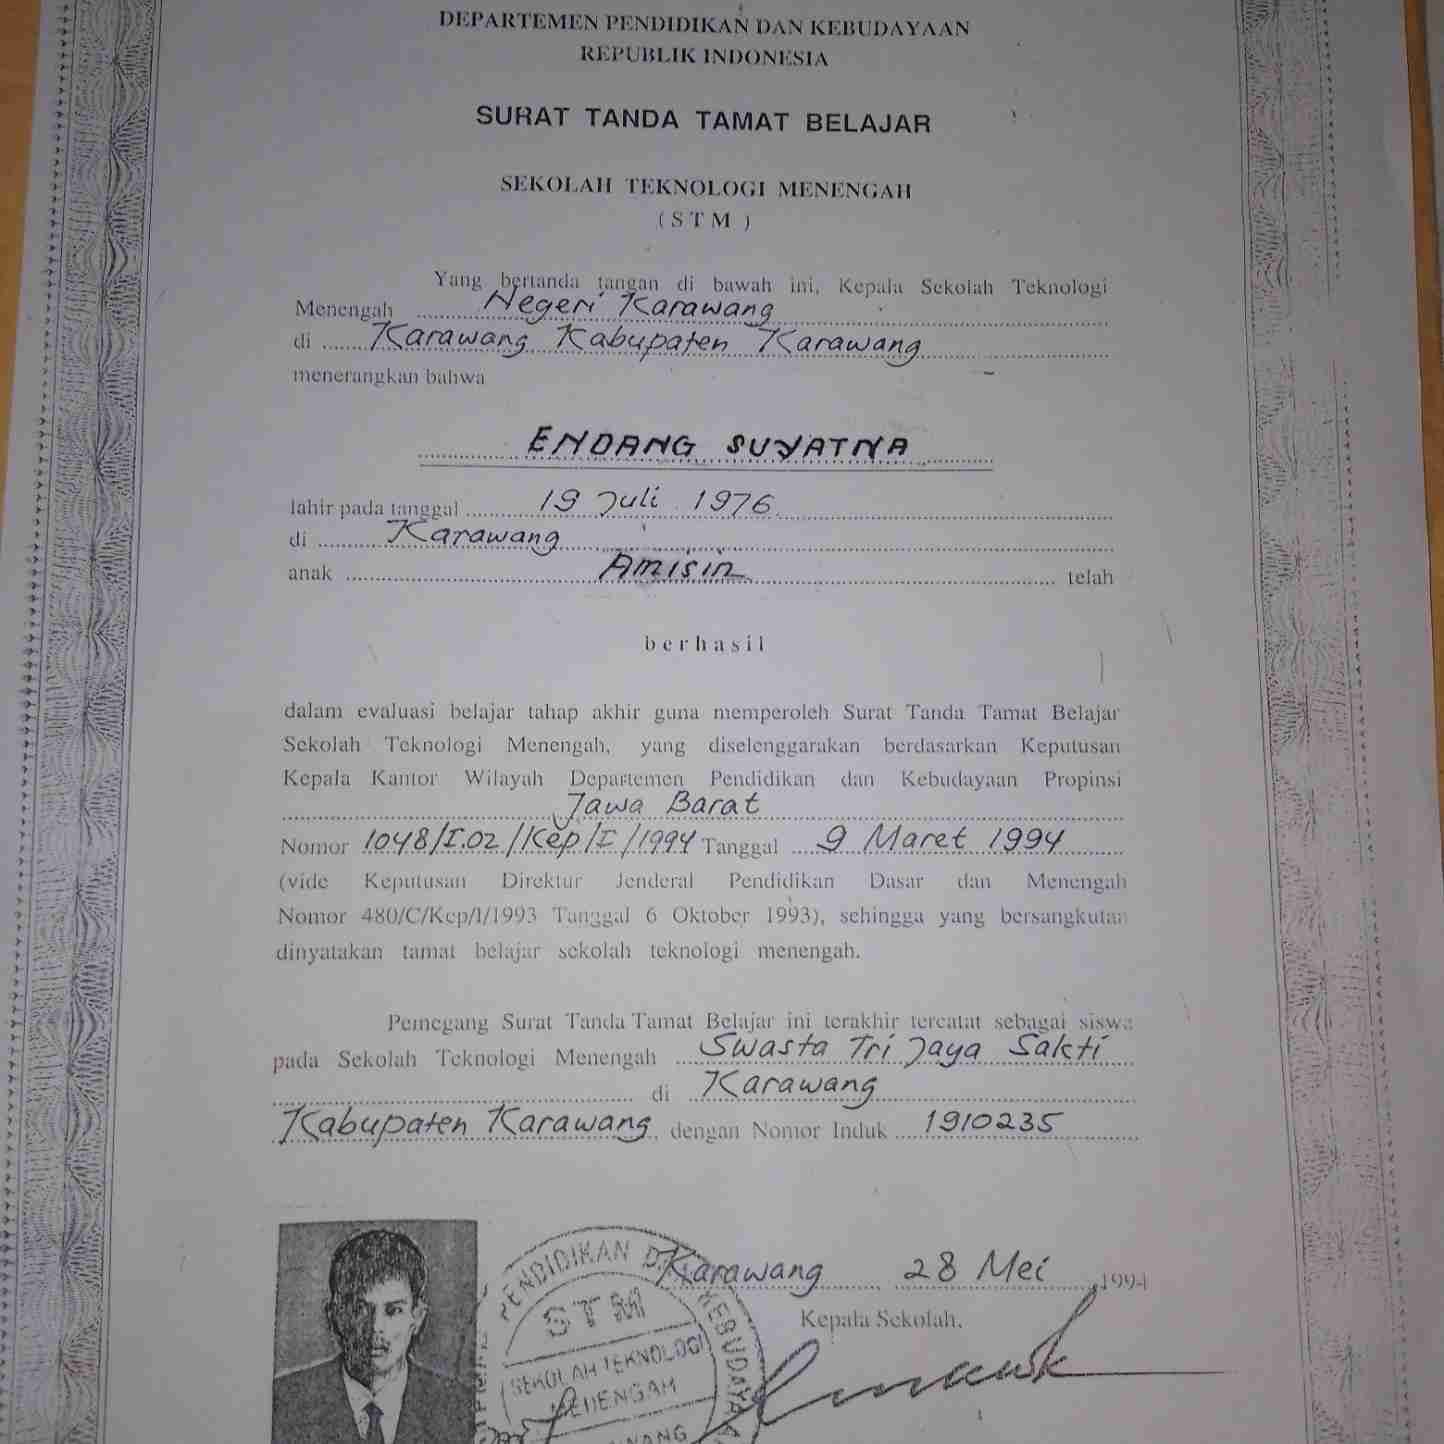 DEPARTEMEN PENDIDIKAN DAN KEBUDAYAAN
REPUBLIK INDONESIA
SURAT TANDA TAMAT BELAJAR
SEKOLAH TEKNOLOGI MENENGAH
( S T M )
Yang bertanda tangan di bawah ini, Kepala Sekolah Teknologi
Menengah Negeri Karawang
di Karawang Kabupaten Karawang
menerangkan bahwa
ENDANG SUYATNA
lahir pada tanggal 19 Juli 1976
di Karawang
anak Amisin telah
berhasil
dalam evaluasi belajar tahap akhir guna memperoleh Surat Tanda Tamat Belajar
Sekolah Teknologi Menengah, yang diselenggarakan berdasarkan Keputusan
Kepala Kantor Wilayah Departemen Pendidikan dan Kebudayaan Propinsi
Jawa Barat
Nomor 1048/I.02/Kep/I/1994 Tanggal 9 Maret 1994
(vide Keputusan Direktur Jenderal Pendidikan Dasar dan Menengah
Nomor 480/C/Kep/I/1993 Tanggal 6 Oktober 1993), sehingga yang bersangkutan
dinyatakan tamat belajar sekolah teknologi menengah.
Pemegang Surat Tanda Tamat Belajar ini terakhir tercatat sebagai siswa
pada Sekolah Teknologi Menengah Swasta Tri Jaya Sakti
di Karawang
Kabupaten Karawang dengan Nomor Induk 1910235
Karawang 28 Mei 1994
Kepala Sekolah,
PENDIDIKAN D KEBUDAYA
STM
SEKOLAH TEKNOLOGI
MENENGAH